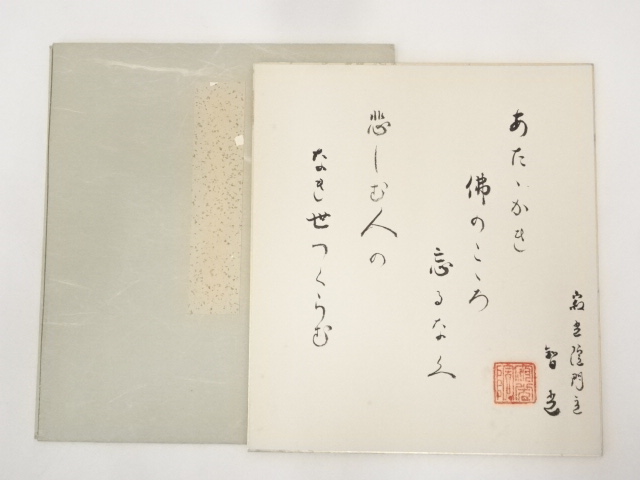 あたゝかき
佛のこゝろ
忘るなく
悲しむ人の
なき世つくらむ
寂光院門主
智光